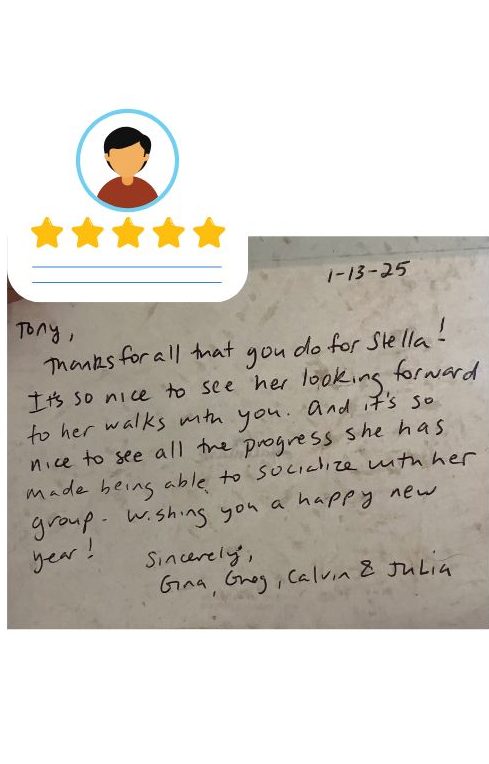 1-13-25
Tony,
Thanks for all that you do for Stella!
It's so nice to see her looking forward
to her walks with you. And it's so
nice to see all the progress she has
made being able to socialize with her
group. Wishing you a happy new
year!
Sincerely,
Gina, Greg, Calvin & Julia